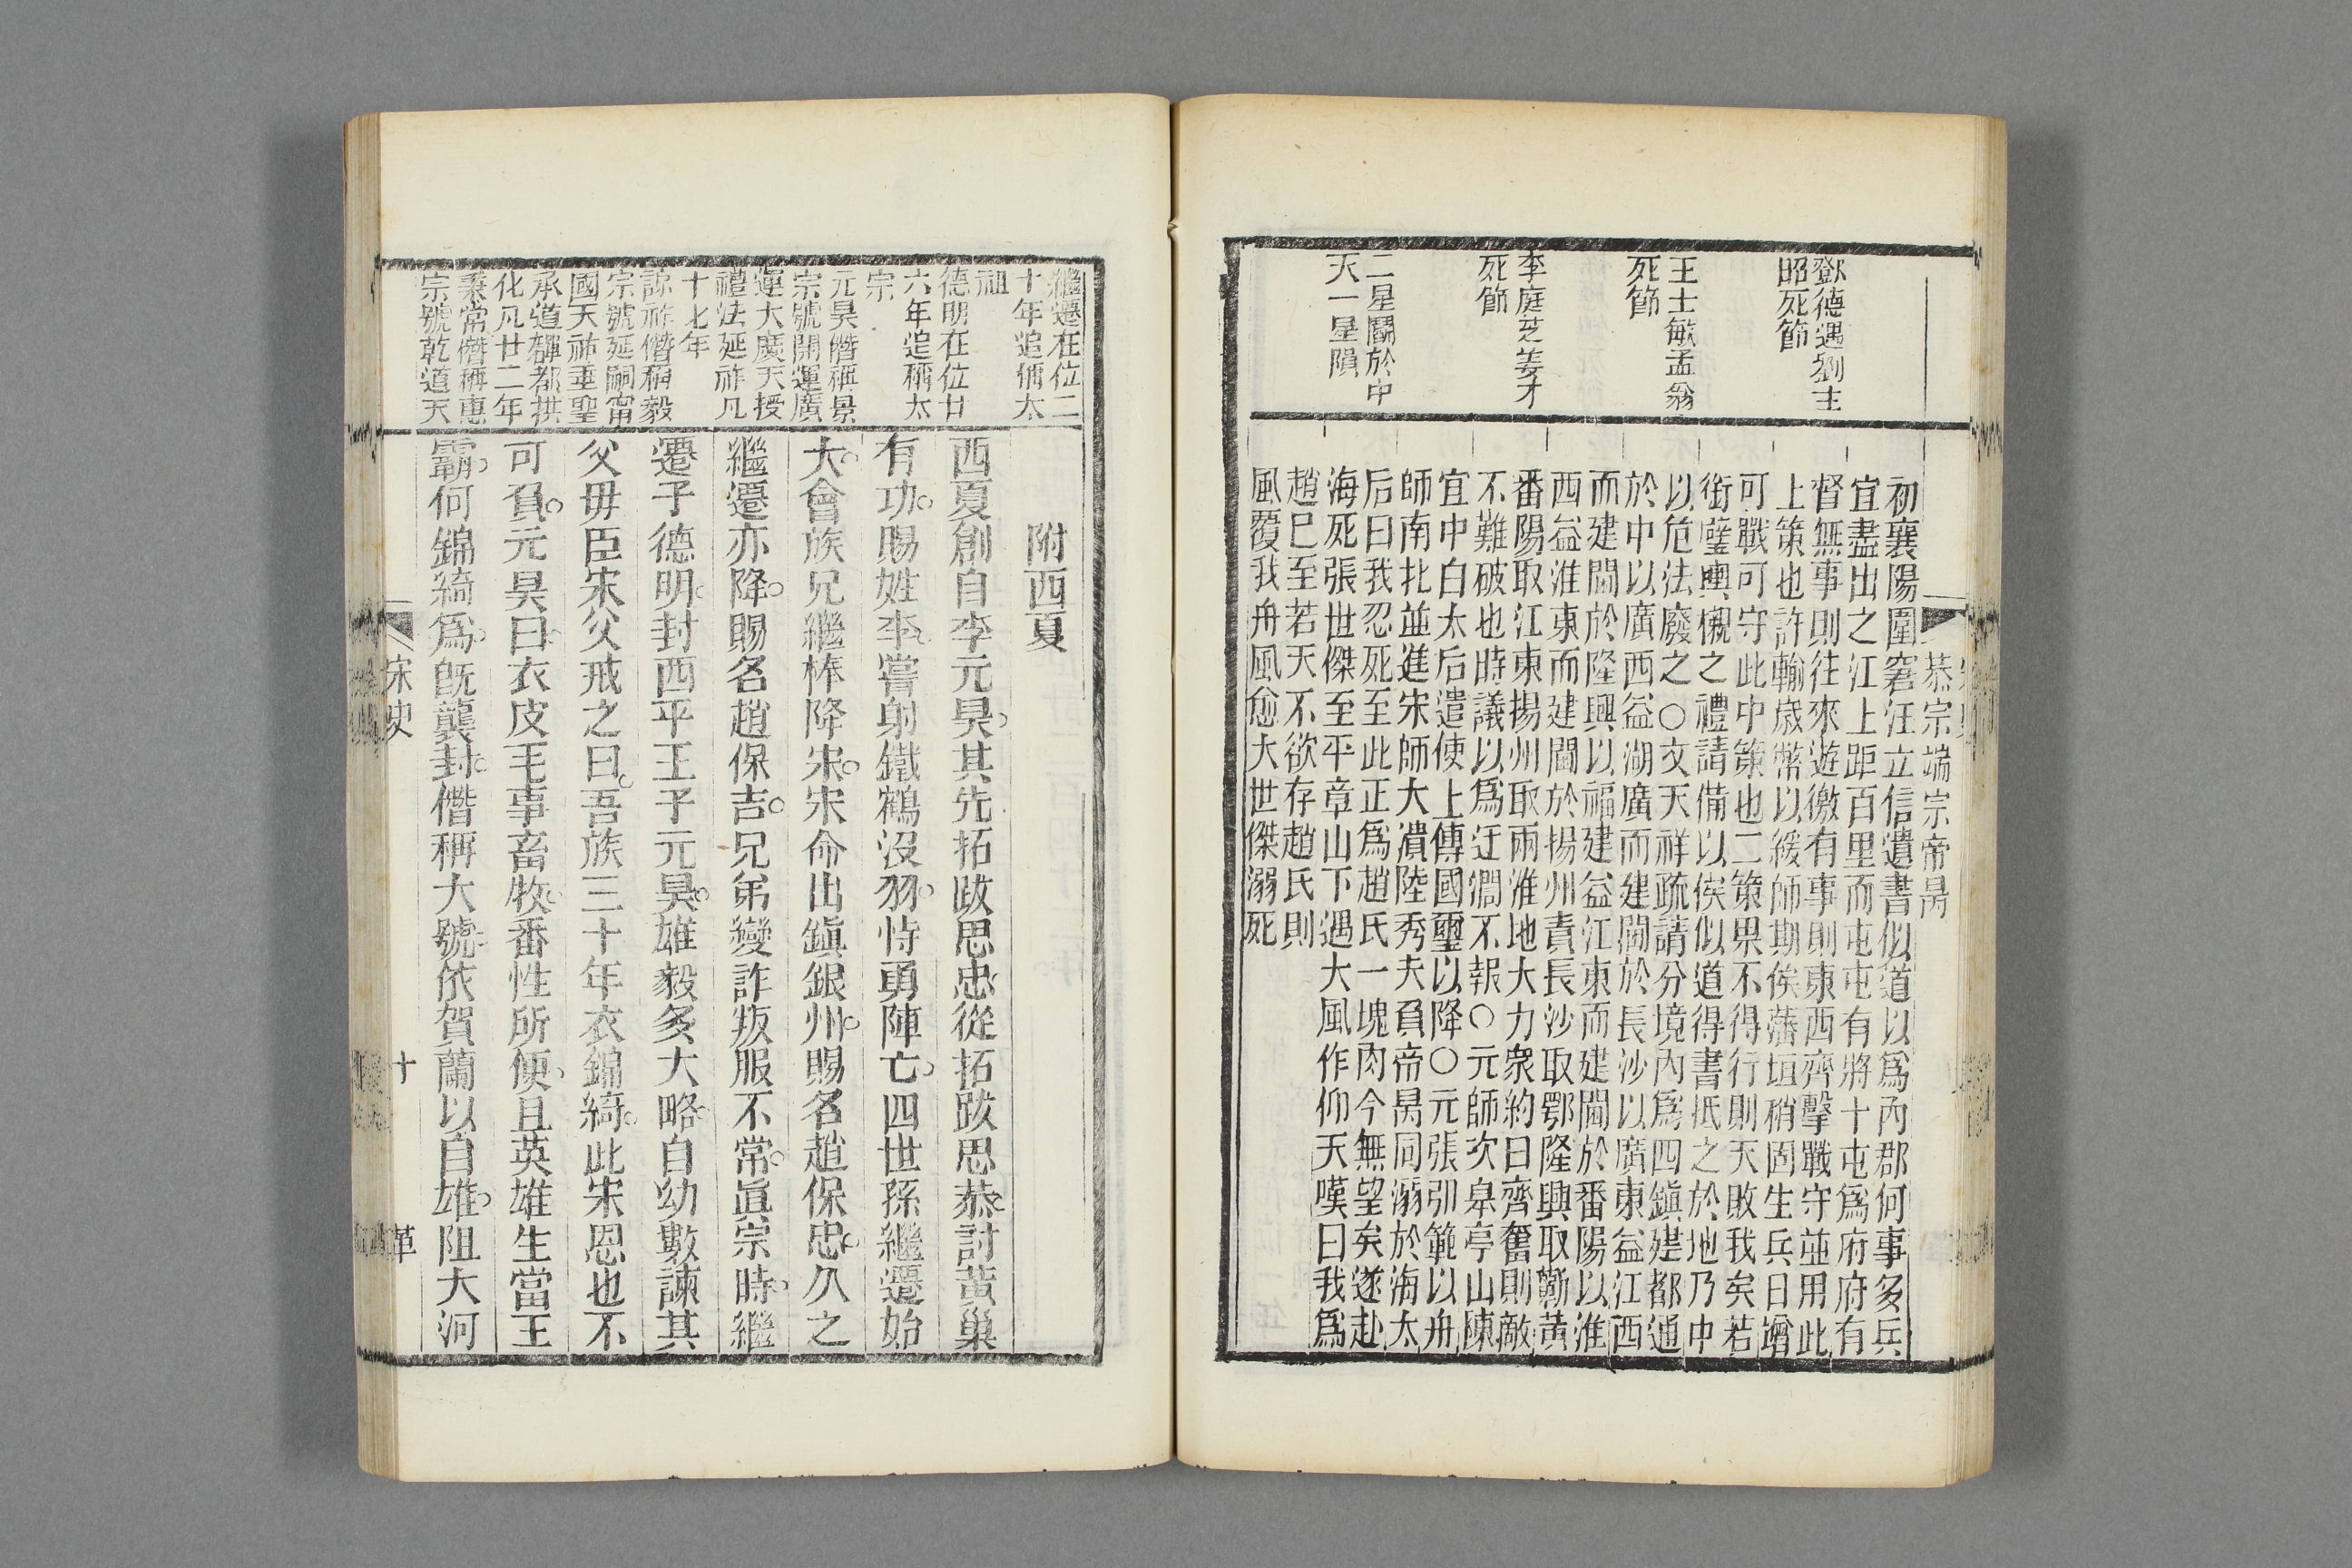 恭宗端宗帝昺
鄧德遇劉士
昭死節
王士敏孟翁
死節
李庭芝姜才
死節
二星鬭於中
天一星隕
初襄陽圍窘汪立信遺書似道以爲內郡何事多兵
宜盡出之江上距百里而屯屯有將十屯爲府府有
督無事則往來遊徼有事則東西齊擊戰守並用此
上策也許輸歲幣以緩師期俟藩垣稍固生兵日增
可戰可守此中策也二策果不得行則天敗我矣若
銜璧輿櫬之禮請備以俟似道得書抵之於地乃中
以危法廢之○文天祥疏請分境內爲四鎭建都通
於中以廣西益湖廣而建閫於長沙以廣東益江西
而建閫於隆興以福建益江東而建閫於番陽以淮
西益淮東而建閫於揚州責長沙取鄂隆興取蘄黃
番陽取江東揚州取兩淮地大力衆約日齊奮則敵
不難破也時議以爲迂濶不報○元師次皐亭山陳
宜中白太后遣使上傳國璽以降○元張弘範以舟
師南北並進宋師大潰陸秀夫負帝昺同溺於海太
后曰我忍死至此正爲趙氏一塊肉今無望矣遂赴
海死張世傑至平章山下遇大風作仰天嘆曰我爲
趙已至若天不欲存趙氏則
風覆我舟風愈大世傑溺死
繼遷在位二
十年追稱太
祖
德明在位廿
六年追稱太
宗
元昊僭稱景
宗號開運廣
運大慶天授
禮法延祚凡
十七年
諒祚僭稱毅
宗號延嗣甯
國天祐垂聖
承道韠都拱
化凡廿二年
秉常僭稱惠
宗號乾道天
附西夏
西夏創自李元昊其先拓跋思忠從拓跋思恭討黃巢
有功賜姓李嘗射鐵鶴沒羽恃勇陣亡四世孫繼遷始
大會族兄繼棒降宋宋命出鎭銀州賜名趙保忠久之
繼遷亦降賜名趙保吉兄弟變詐叛服不常眞宗時繼
遷子德明封西平王子元昊雄毅多大略自幼數諫其
父毋臣宋父戒之曰吾族三十年衣錦綺此宋恩也不
可負元昊曰衣皮毛事畜牧番性所便且英雄生當王
霸何錦綺爲旣襲封僭稱大號依賀蘭以自雄阻大河
宋史
十
革